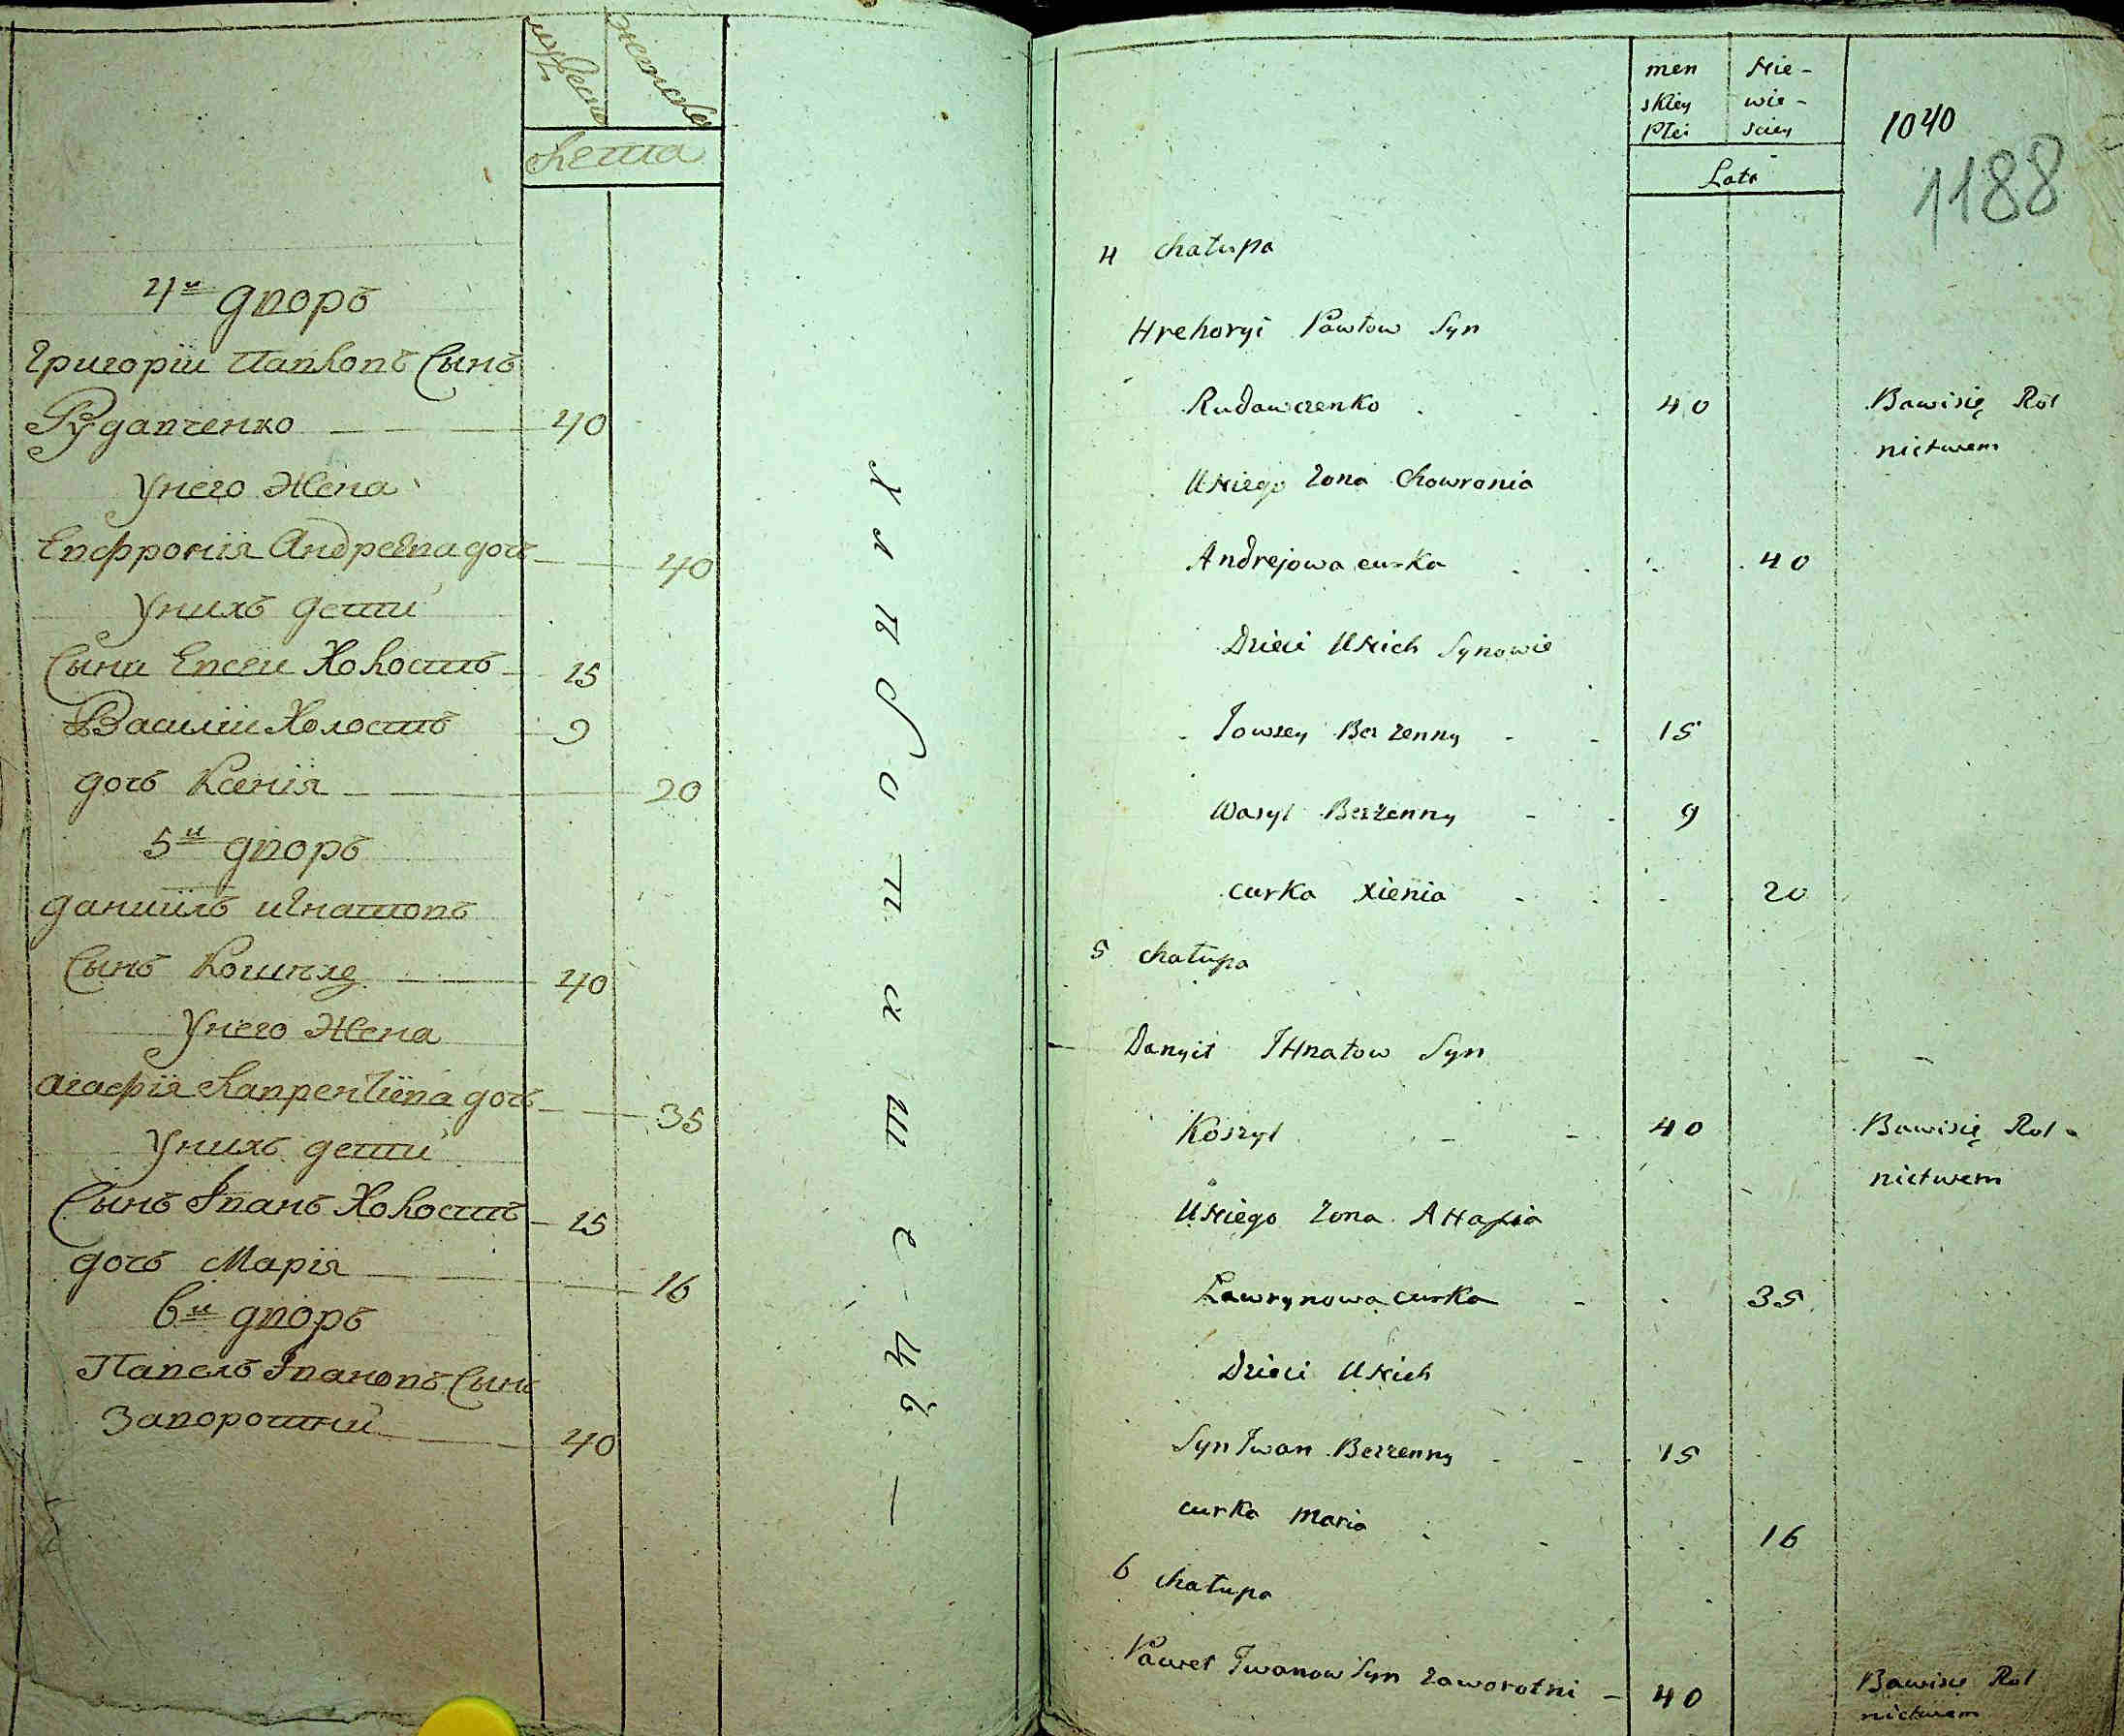 мужеска
женска
лета
4й дворъ
Григорiи Павловъ Сынъ
Рудавченко 40
Унего Жена
Евфронiя Андреевна дочь 40
Унихъ дети
Сыни Евсеи Холостъ 15
Василiи Холостъ 9
дочъ Ксенiя 20
5й дворъ
даниилъ игнатовъ
Сынъ 40
Унего Жена
агафiя дочъ 35
Унихъ дети
Сынъ Iванъ Холостъ 15
дочъ Марiя 16
6й дворъ
Павелъ Iвановъ Сынъ
40
men
skiey
Płci
Nie-
wie-
sciey
Lata
1040
1188
4 chałupa
Hrehoryi Pawłow Syn
Rudawczenko 40 Bawisię Rol
nictwem
UNiego Zona Chowronia
Andrejowa curka 40
Dzieci UNich Synowie
Jowsey Bez Zenny 15
Wasyl Bezżenny 9
curka Xienia 20
5 chałupa
Danyił IHnatow Syn
Koszyl 40 Bawisię Rol-
nictwem
UNiego Zona AHafia
Ławrynowa curka 35
Dzieci UNich
Syn Iwan Bezzenny 15
curka Maria 16
6 chałupa
Paweł Iwanow Syn Zaworotni 40 Bawisie Rol
nictwem